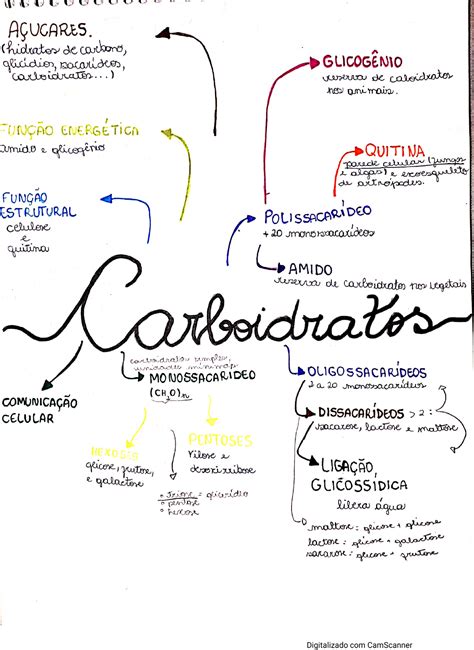 AÇUCARES.
(hidratos de carbono,
glicídios, sacarídeos,
carboidratos...)
FUNÇÃO ENERGÉTICA
amido e glicogênio
FUNÇÃO
ESTRUTURAL
celulose
e
quitina
GLICOGÊNIO
reserva de caboidratos
nos animais.
QUITINA
parede celular (fungos
e algas) e exoesqueleto
de artrópodes.
POLISSACARÍDEO
+20 monossacarídeos
AMIDO
reserva de carboidratos nos vegetais
Carboidratos
COMUNICAÇÃO
CELULAR
carboidratos simples,
unidades mínimas
MONOSSACARIDEO
(CH₂O)n
HEXOSES
glicose, frutose,
e galactose
PENTOSES
ribose e
desoxirribose
• triose =
• pentose
• hexose
OLIGOSSACARÍDEOS
2 a 20 monossacarídeos
DISSACARÍDEOS > 2 :
sacarose, lactose e maltose
LIGAÇÃO
GLICOSSÍDICA
libera água
maltose: glicose + glicose
lactose: glicose + galactose
sacarose: glicose + frutose
Digitalizado com CamScanner